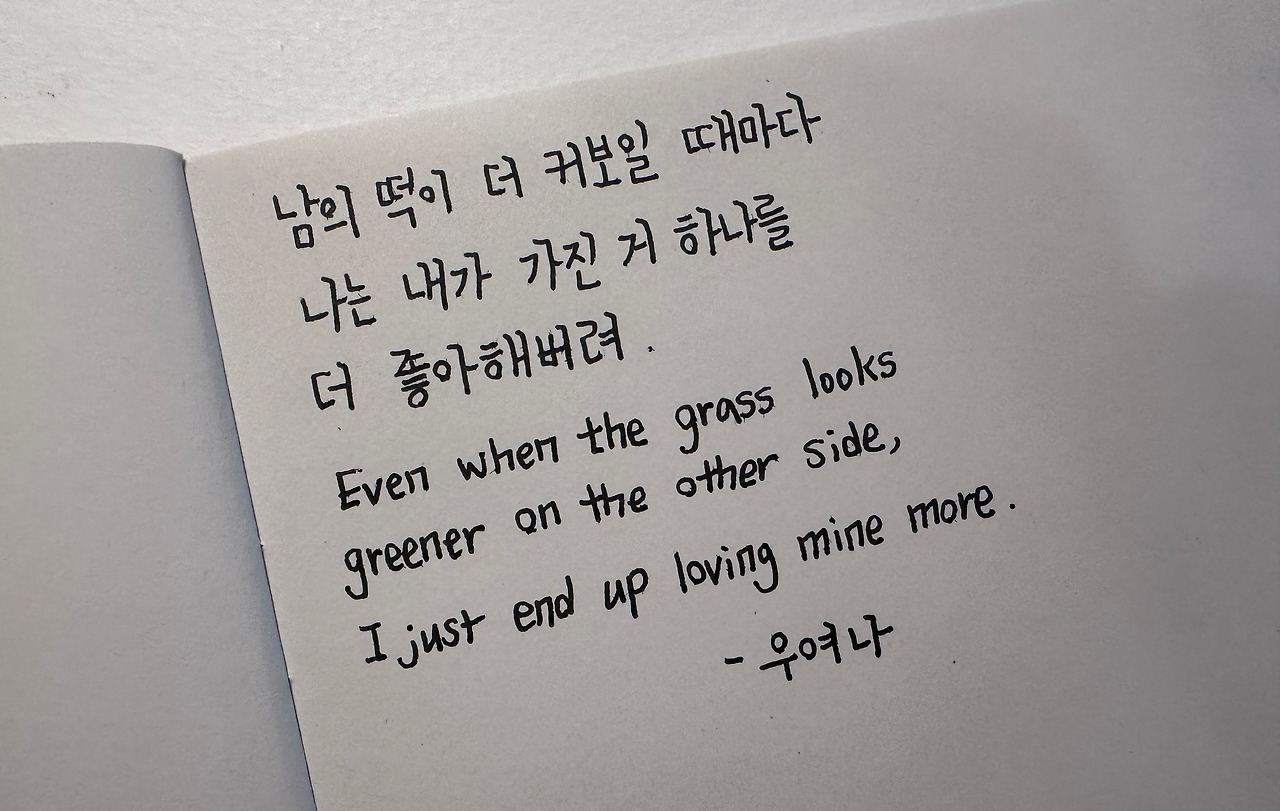 남의 떡이 더 커보일 때마다
나는 내가 가진 거 하나를
더 좋아해버려.
Even when the grass looks
greener on the other side,
I just end up loving mine more.
- 우여나